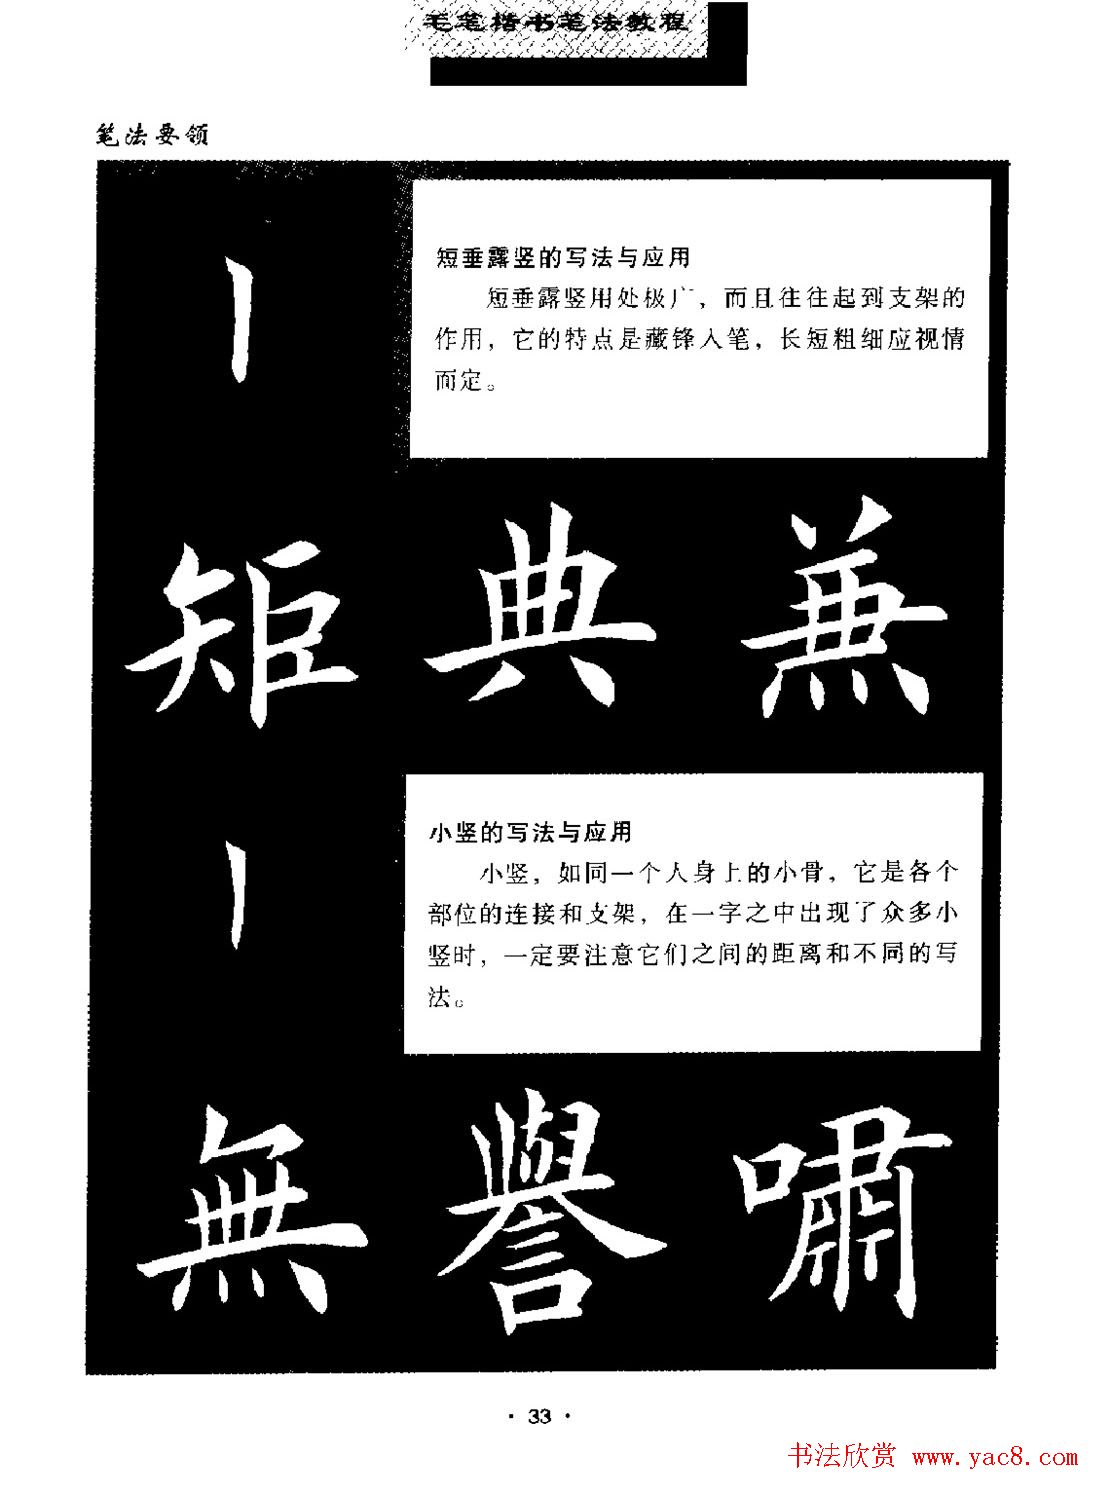 毛笔楷书笔法教程
笔法要领
短垂露竖的写法与应用
短垂露竖用处极广，而且往往起到支架的
作用，它的特点是藏锋入笔，长短粗细应视情
而定。
矩典兼
小竖的写法与应用
小竖，如同一个人身上的小骨，它是各个
部位的连接和支架，在一字之中出现了众多小
竖时，一定要注意它们之间的距离和不同的写
法。
無譽嘯
·33·
书法欣赏 www.yac8.com